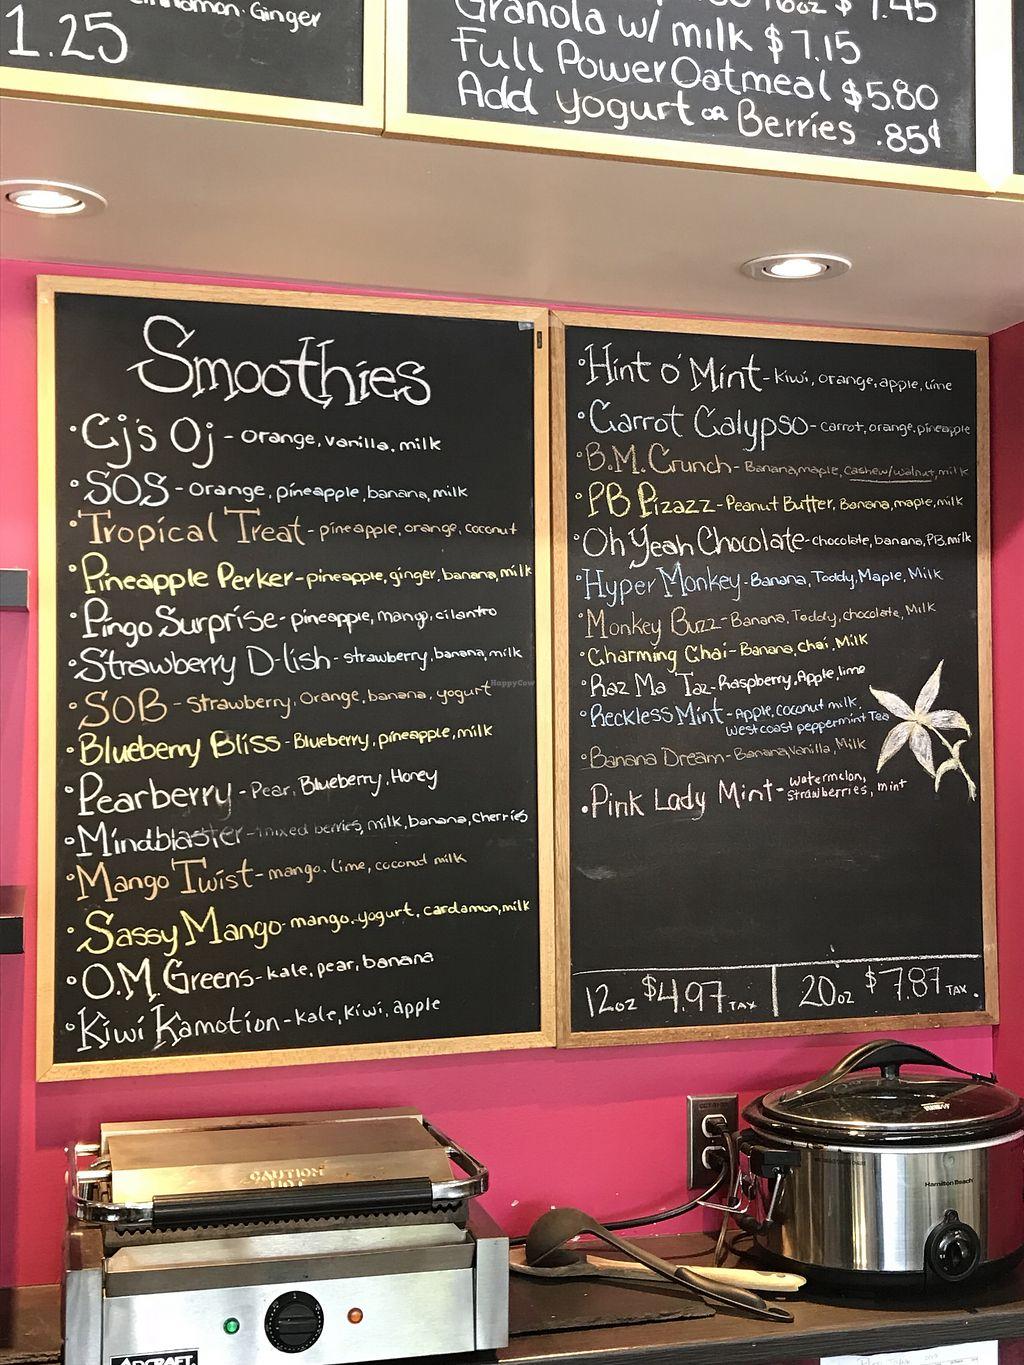 Ginger
1.25
Granola w/ milk $7.15
Full Power Oatmeal $5.80
Add yogurt or Berries .85¢
Smoothies
• Cj's Oj - orange, vanilla, milk
• SOS - orange, pineapple, banana, milk
• Tropical Treat - pineapple, orange, coconut
• Pineapple Perker - pineapple, ginger, banana, milk
• Pingo Surprise - pineapple, mango, cilantro
• Strawberry D-lish - strawberry, banana, milk
• SOB - Strawberry, Orange, banana, yogurt
• Blueberry Bliss - Blueberry, pineapple, milk
• Pearberry - Pear, Blueberry, Honey
• Mindblaster - mixed berries, milk, banana, cherries
• Mango Twist - mango, lime, coconut milk
• Sassy Mango - mango, yogurt, cardamon, milk
• O.M. Greens - kale, pear, banana
• Kiwi Kamotion - kale, kiwi, apple
• Hint o' Mint - kiwi, orange, apple, lime
• Carrot Calypso - carrot, orange, pineapple
• B.M. Crunch - Banana, maple, cashew/walnut, milk
• PB Pizazz - Peanut Butter, Banana, maple, milk
• Oh Yeah Chocolate - chocolate, banana, PB, milk
• Hyper Monkey - Banana, Toddy, Maple, Milk
• Monkey Buzz - Banana, Toddy, chocolate, Milk
• Charming Chai - Banana, chai, Milk
• Raz Ma Taz - Raspberry, Apple, lime
• Reckless Mint - Apple, coconut milk,
westcoast peppermint Tea
• Banana Dream - Banana, Vanilla, Milk
• Pink Lady Mint - watermelon,
strawberries, mint
12oz $4.97 TAX | 20oz $7.87 TAX.
HappyCow
CAUTION
HOT
Hamilton Beach
ADCRAFT